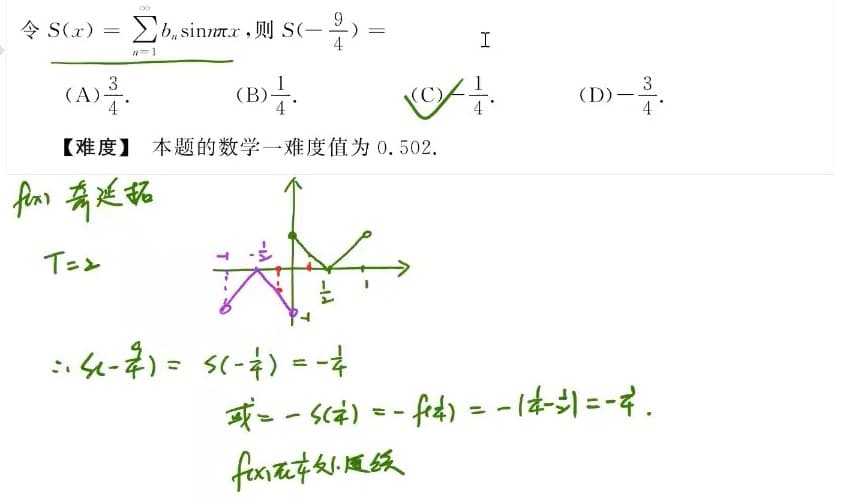 令 S(x) = \sum_{n=1}^{\infty} b_n sin nπx ,则 S(-\frac{9}{4}) =
(A) \frac{3}{4}. (B) \frac{1}{4}. (C) -\frac{1}{4}. (D) -\frac{3}{4}.
【难度】 本题的数学一难度值为 0.502.
f(x) 奇延拓
T=2
-1 -\frac{1}{2} \frac{1}{2} 1
-1
∴ S(-\frac{9}{4}) = S(-\frac{1}{4}) = -\frac{1}{4}
或 = -S(\frac{1}{4}) = -f(\frac{1}{4}) = -|\frac{1}{4}-\frac{1}{2}| = -\frac{1}{4}.
f(x)在\frac{1}{4}处连续